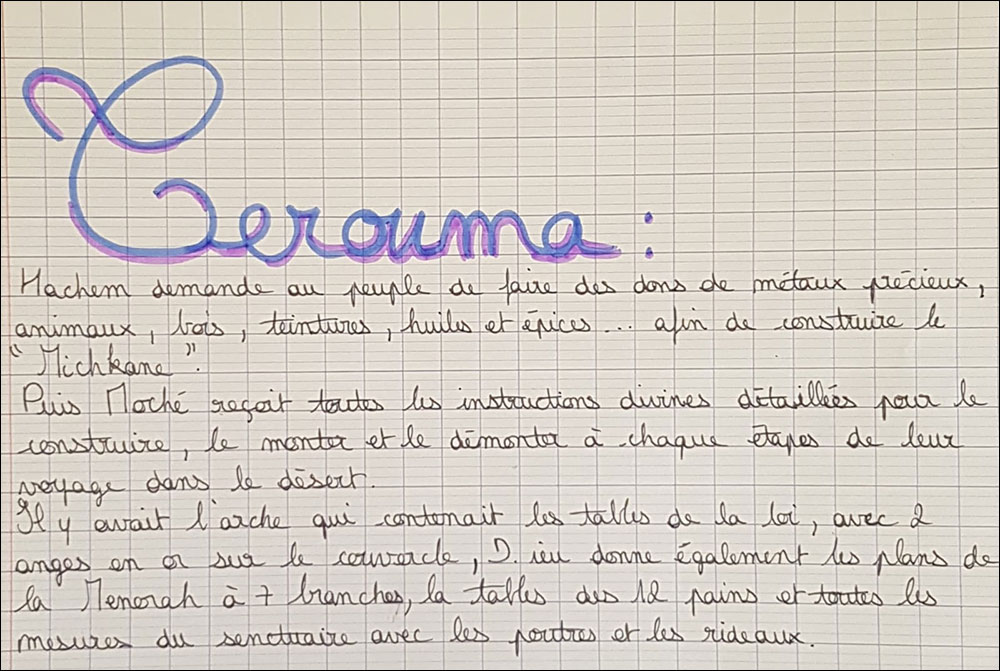 Terouma :
Hachem demande au peuple de faire des dons de métaux précieux,
animaux, bois, teintures, huiles et épices... afin de construire le
"Michkane".
Puis Moché reçoit toutes les instructions divines détaillées pour le
construire, le monter et le démonter à chaque étapes de leur
voyage dans le désert.
Il y avait l'arche qui contenait les tables de la loi, avec 2
anges en or sur le couvercle, D.ieu donne également les plans de
la Menorah à 7 branches, la tables des 12 pains et toutes les
mesures du senctuaire avec les poutres et les rideaux.